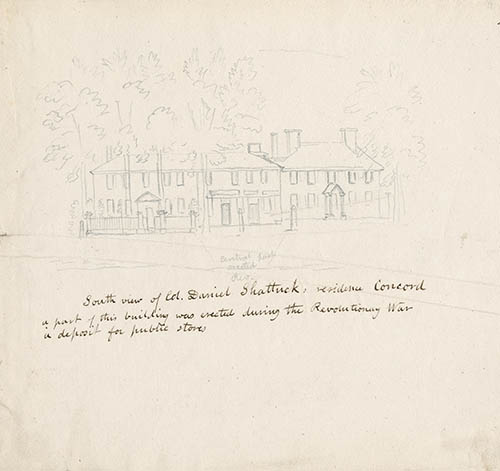 central part
erected
South view of Col. Daniel Shattuck, residence Concord
a part of this building was erected during the Revolutionary War
a deposit for public stores